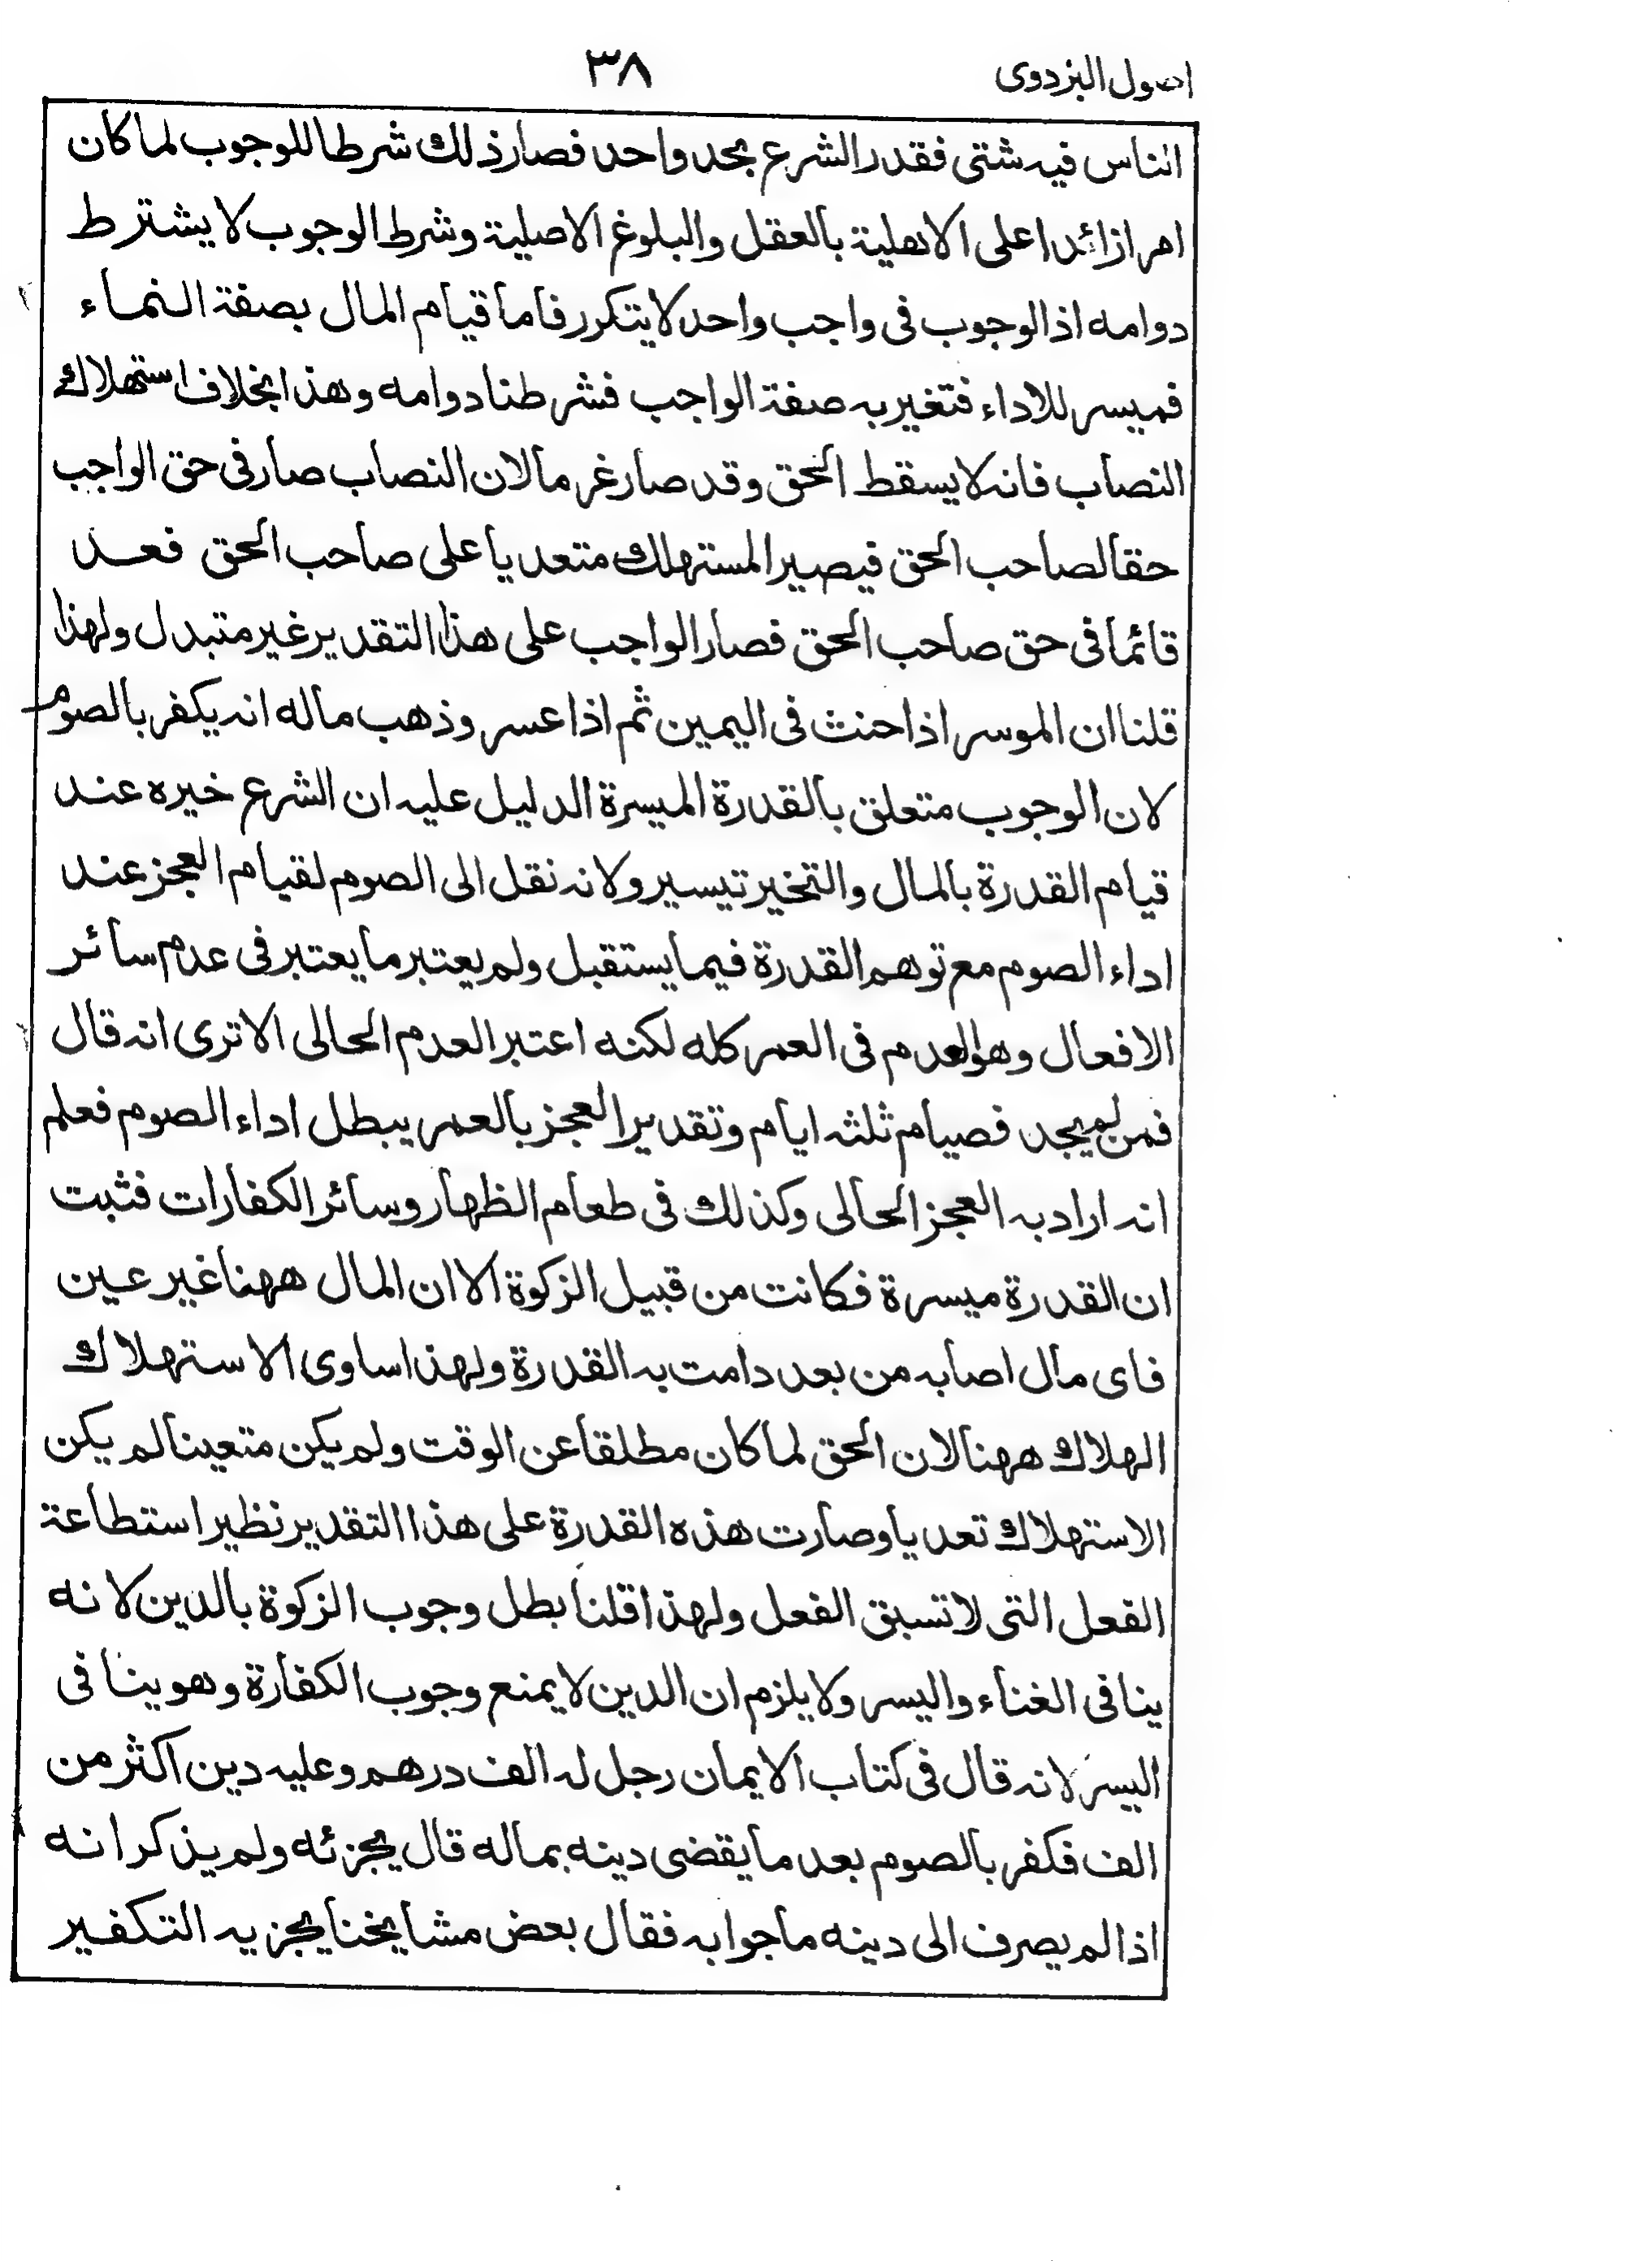 اصول البزدوی
٣٨
الناس فيه شتى فقدر الشرع بحد واحد فصار ذلك شرطا للوجوب لما كان
امرا زائدا على الاهلية بالعقل والبلوغ الاصلية وشرط الوجوب لا يشترط
دوامه اذ الوجوب فى واجب واحد لا يتكرر فاما قيام المال بصفة النماء
فميسر للاداء فتغير به صفة الواجب فشرطنا دوامه وهذا بخلاف استهلاك
النصاب فانه لا يسقط الحق وقد صار غرما لان النصاب صار فى حق الواجب
حقا لصاحب الحق فيصير المستهلك متعديا على صاحب الحق فعد
قائما فى حق صاحب الحق فصار الواجب على هذا التقدير غير متبدل ولهذا
قلنا ان الموسر اذا حنث فى اليمين ثم اذا عسر وذهب ماله انه يكفر بالصوم
لان الوجوب متعلق بالقدرة الميسرة الدليل عليه ان الشرع خيره عند
قيام القدرة بالمال والتخير تيسير ولانه نقل الى الصوم لقيام العجز عند
اداء الصوم مع توهم القدرة فيما يستقبل ولم يعتبر ما يعتبر فى عدم سائر
الافعال وهو العدم فى العمر كله لكنه اعتبر العدم الحالى الا ترى انه قال
فمن لم يجد فصيام ثلثه ايام وتقدير العجز بالعمر يبطل اداء الصوم فعلم
انه اراد به العجز الحالى وكذلك فى طعام الظهار وسائر الكفارات فثبت
ان القدرة ميسرة فكانت من قبيل الزكوة الا ان المال ههنا غير عين
فاى مال اصابه من بعد دامت به القدرة ولهذا ساوى الاستهلاك
الهلاك ههنا لان الحق لما كان مطلقا عن الوقت ولم يكن متعينا لم يكن
الاستهلاك تعديا وصارت هذه القدرة على هذا التقدير نظير استطاعة
الفعل التى لا تسبق الفعل ولهذا قلنا بطل وجوب الزكوة بالدين لانه
ينافى الغناء واليسر ولا يلزم ان الدين لا يمنع وجوب الكفارة وهو ينافى
اليسر لانه قال فى كتاب الايمان رجل له الف درهم وعليه دين اكثر من
الف فكفر بالصوم بعد ما يقضى دينه بماله قال يجزئه ولم يذكر انه
اذا لم يصرف الى دينه ما جوابه فقال بعض مشايخنا يجزيه التكفير